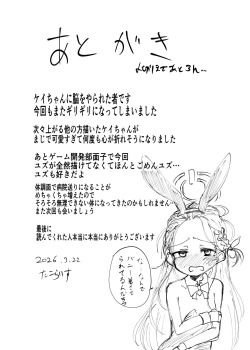 あとがき
ケイちゃんに脳をやられた者です
今回もまたギリギリになってしまいました
次々上がる他の方描いたケイちゃんが
まじで可愛すぎて何度も心が折れそうになりました
あとゲーム開発部面子で今回
ユズが全然描けてなくてほんとごめんユズ…
ユズも好きだよ
体調面で病院送りになることが
めちゃくちゃ増えたので
そろそろ無理できない体になってきたのかもしれませんー
また次回も会いましょう
最後に
読んでくれた人本当に本当にありがとうございます
2026.3.22
たこらいす